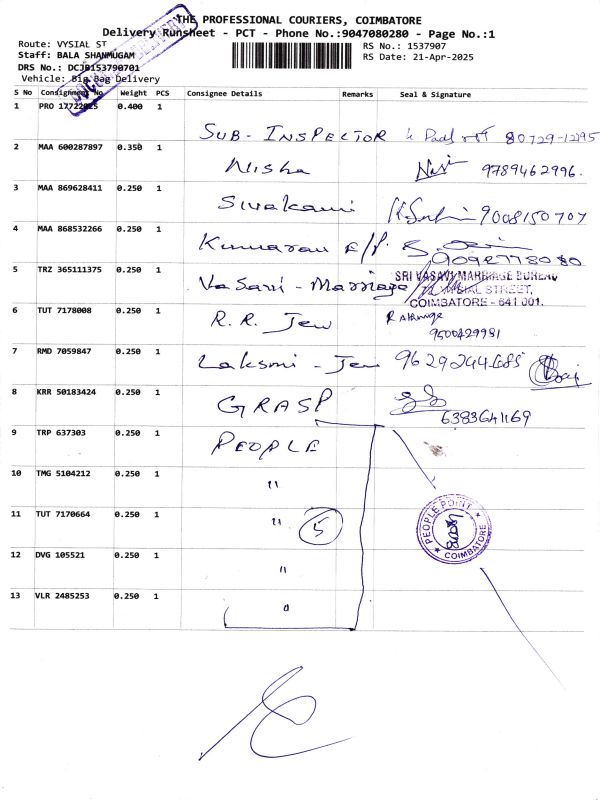 THE PROFESSIONAL COURIERS, COIMBATORE
Delivery Runsheet - PCT - Phone No.:9047080280 - Page No.:1
Route: VYSIAL ST
RS No.: 1537907
Staff: BALA SHANMUGAM
RS Date: 21-Apr-2025
DRS No.: DCJB153790701
Vehicle: Big Bag Delivery
S No Consignment No Weight PCS Consignee Details Remarks Seal & Signature
1 PRO 17722025 0.400 1
SUB-INSPECTOR
2 MAA 600287897 0.350 1
Nisha 9789462996.
3 MAA 869628411 0.250 1
Sivakami 9008150707
4 MAA 868532266 0.250 1
Kumaran
5 TRZ 365111375 0.250 1
Vasavi - Marriage
SRI VASAVI MARRIAGE BUREAU
STREET,
COIMBATORE - 641 001.
6 TUT 7178008 0.250 1
R.R. Jew
9500429981
7 RMD 7059847 0.250 1
Laksmi - Jew
8 KRR 50183424 0.250 1
GRASP 6383641169
9 TRP 637303 0.250 1
PEOPLE
10 TMG 5104212 0.250 1
"
11 TUT 7170664 0.250 1
" 5
12 DVG 105521 0.250 1
"
13 VLR 2485253 0.250 1
"
PEOPLE POINT
COIMBATORE